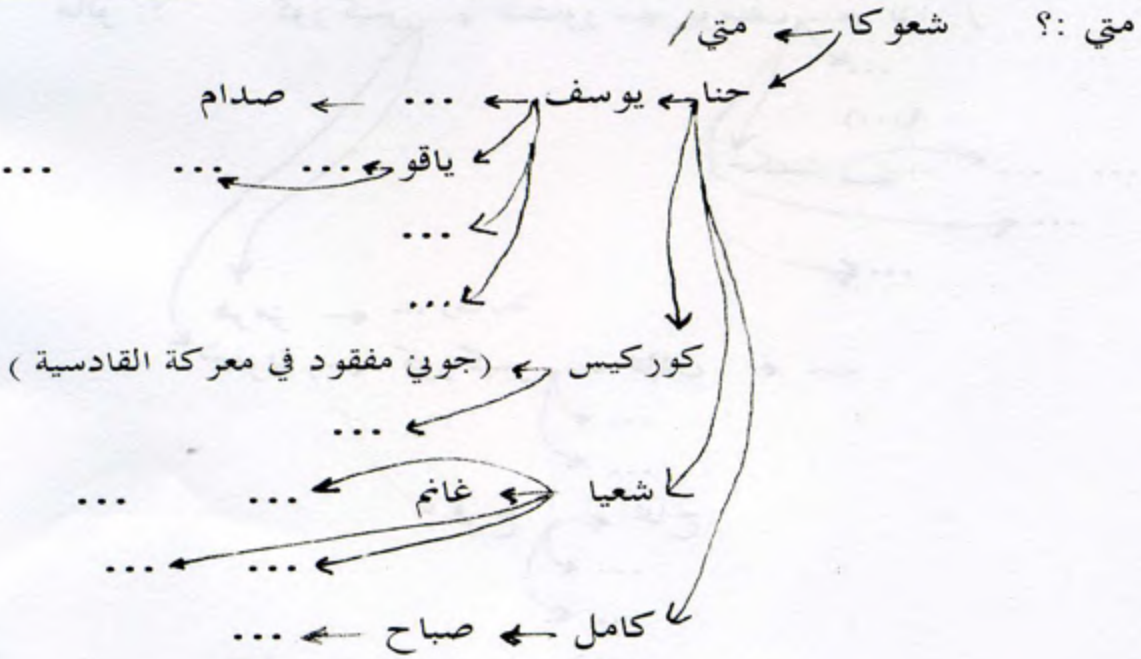 متي :؟ شعوكا ← متي /
حنا ← يوسف ← ... ← صدام
ياقو ← ... ... ...
...
...
كوركيس ← (جوني مفقود في معركة القادسية )
...
شعيا ← غانم ... ...
... ...
كامل ← صباح ← ...